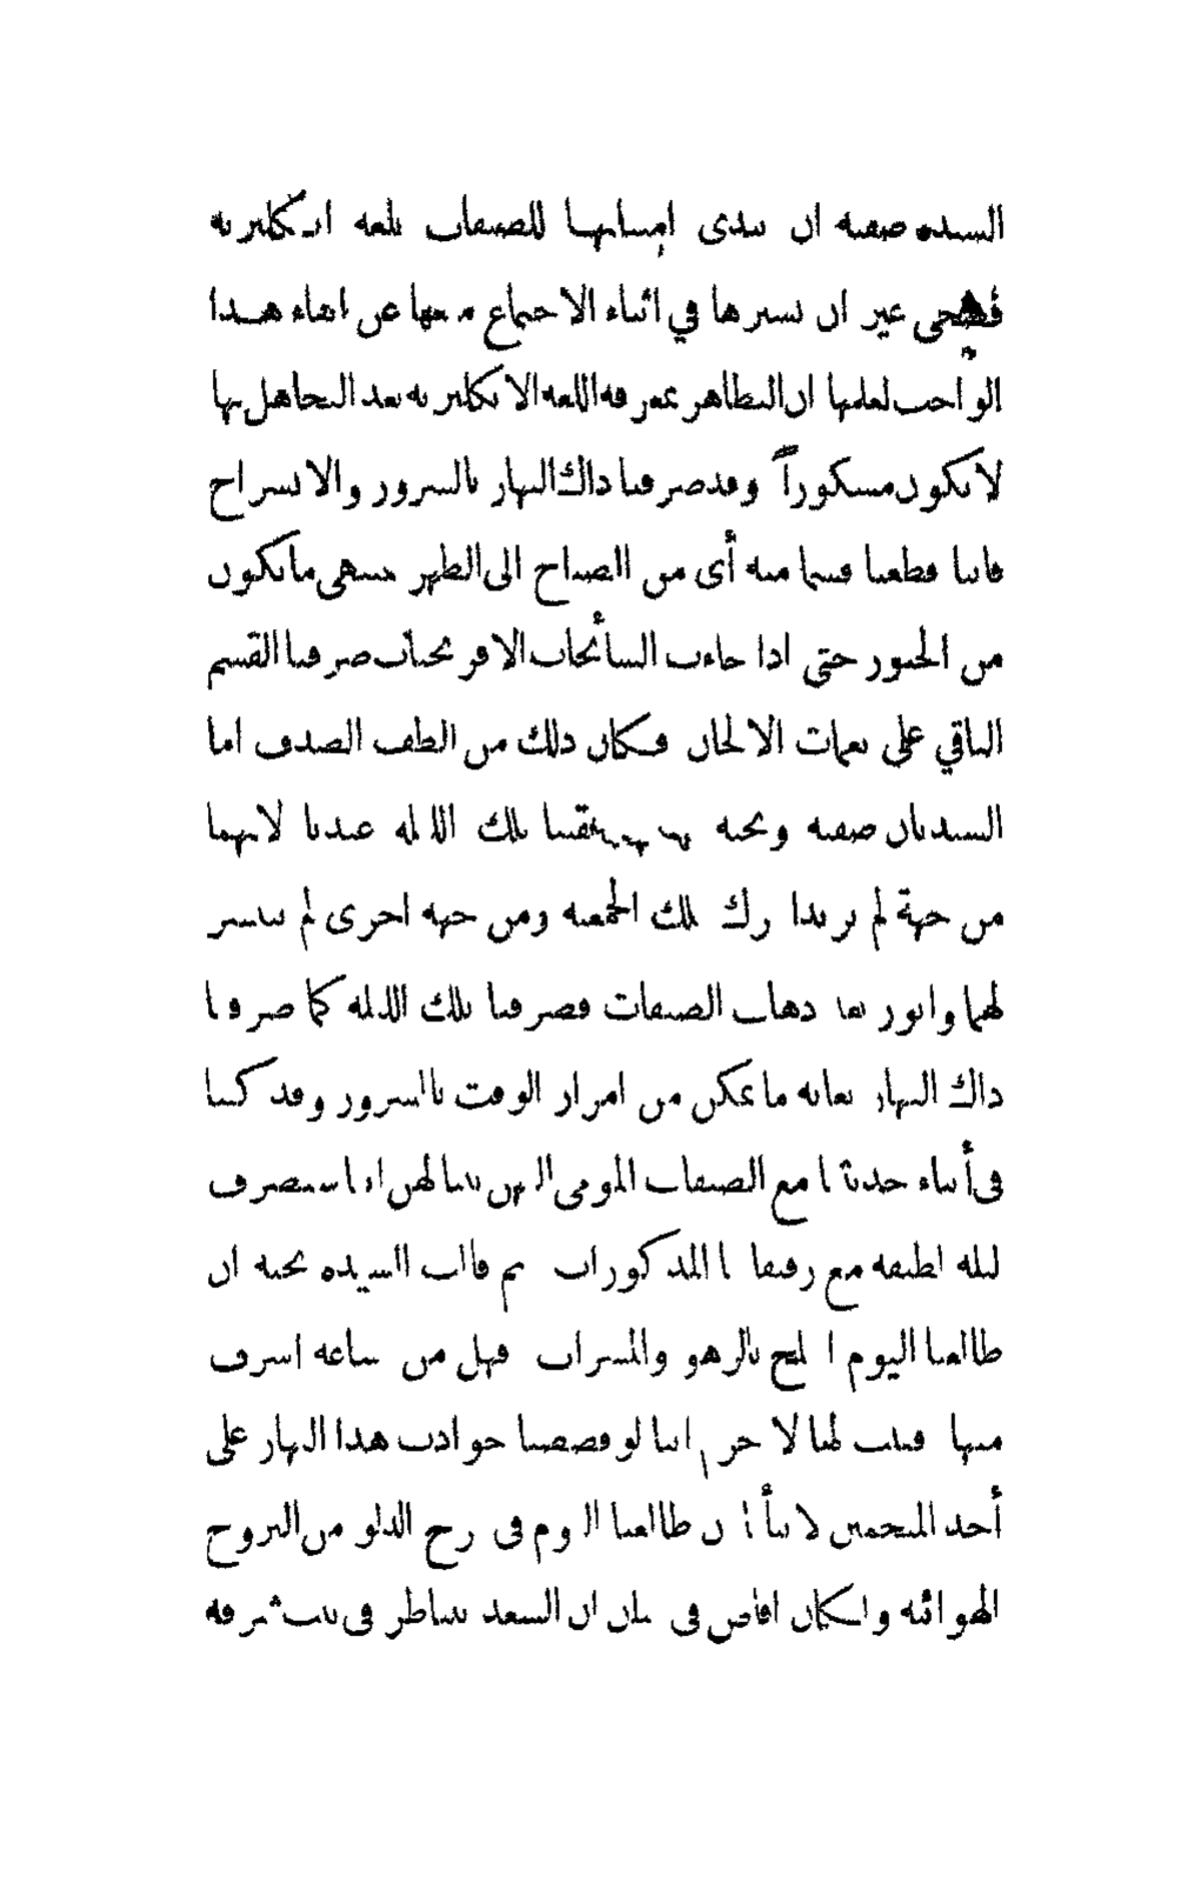 السيدة صفية ان تبدى امتنانها للضيفات بلغة انكليزية
فصحى غير ان تسترها في اثناء الاجتماع منعها عن ايفاء هذا
الواجب لعلمها ان التظاهر بمعرفة اللغة الانكليزية بعد التجاهل بها
لا يكون مشكوراً وقد صرفنا ذاك النهار بالسرور والانشراح
فاننا قطعنا قسما منه أى من الصباح الى الظهر بمنتهى ما يكون
من الحبور حتى اذا جاءت السائحات الافرنجيات صرفنا القسم
الباقي على نغمات الالحان فكان ذلك من الطف الصدف اما
السيدتان صفية ونجيه رافقتنا تلك الليلة عندنا لانهما
من جهة لم يريدا ترك تلك الجمعية ومن جهة اخرى لم يتيسر
لهما وابور بعد ذهاب الضيفات فصرفنا تلك الليلة كما صرفنا
ذاك النهار بغاية ما يمكن من امرار الوقت بالسرور وقد كنا
فى أثناء حديثنا مع الضيفات المومى اليهن بينا لهن اننا سنصرف
ليلة لطيفة مع رفيقاتنا المذكورات ثم قالت السيدة نجية ان
طالعنا اليوم افتتح بالزهو والمسرات فهل من ساعة اشرف
منها فقلت لها لا جرم اننا لو قصصنا حوادث هذا النهار على
أحد المنجمين لانبأنا ان طالعنا اليوم فى برج الدلو من البروج
الهوائية ولكان افاض فى بيان ان السعد يناظر فى بيت شرفه